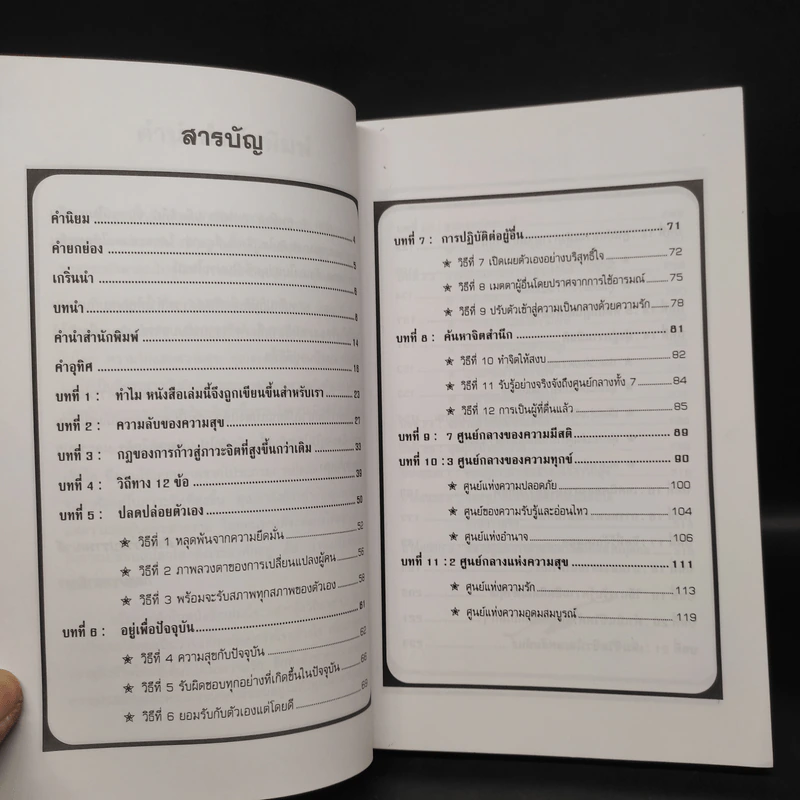 สารบัญ
คำนิยม 4
คำยกย่อง 5
เกริ่นนำ 6
บทนำ 8
คำนำสำนักพิมพ์ 14
คำอุทิศ 18
บทที่ 1 : ทำไม หนังสือเล่มนี้จึงถูกเขียนขึ้นสำหรับเรา 23
บทที่ 2 : ความลับของความสุข 27
บทที่ 3 : กฎของการก้าวสู่ภาวะจิตที่สูงขึ้นกว่าเดิม 33
บทที่ 4 : วิถีทาง 12 ข้อ 39
บทที่ 5 : ปลดปล่อยตัวเอง 50
★ วิธีที่ 1 หลุดพ้นจากความยึดมั่น 52
★ วิธีที่ 2 ภาพลวงตาของการเปลี่ยนแปลงผู้คน 56
★ วิธีที่ 3 พร้อมจะรับสภาพทุกสภาพของตัวเอง 58
บทที่ 6 : อยู่เพื่อปัจจุบัน 61
★ วิธีที่ 4 ความสุขกับปัจจุบัน 62
★ วิธีที่ 5 รับผิดชอบทุกอย่างที่เกิดขึ้นในปัจจุบัน 66
★ วิธีที่ 6 ยอมรับกับตัวเองแต่โดยดี 69
บทที่ 7 : การปฏิบัติต่อผู้อื่น 71
★ วิธีที่ 7 เปิดเผยตัวเองอย่างบริสุทธิ์ใจ 72
★ วิธีที่ 8 เมตตาผู้อื่นโดยปราศจากการใช้อารมณ์ 75
★ วิธีที่ 9 ปรับตัวเข้าสู่ความเป็นกลางด้วยความรัก 78
บทที่ 8 : ค้นหาจิตสำนึก 81
★ วิธีที่ 10 ทำจิตให้สงบ 82
★ วิธีที่ 11 รับรู้อย่างจริงจังถึงศูนย์กลางทั้ง 7 84
★ วิธีที่ 12 การเป็นผู้ที่ตื่นแล้ว 85
บทที่ 9 : 7 ศูนย์กลางของความมีสติ 89
บทที่ 10 : 3 ศูนย์กลางของความทุกข์ 90
★ ศูนย์แห่งความปลอดภัย 100
★ ศูนย์ของความรับรู้และอ่อนไหว 104
★ ศูนย์แห่งอำนาจ 106
บทที่ 11 : 2 ศูนย์กลางแห่งความสุข 111
★ ศูนย์แห่งความรัก 113
★ ศูนย์แห่งความอุดมสมบูรณ์ 119